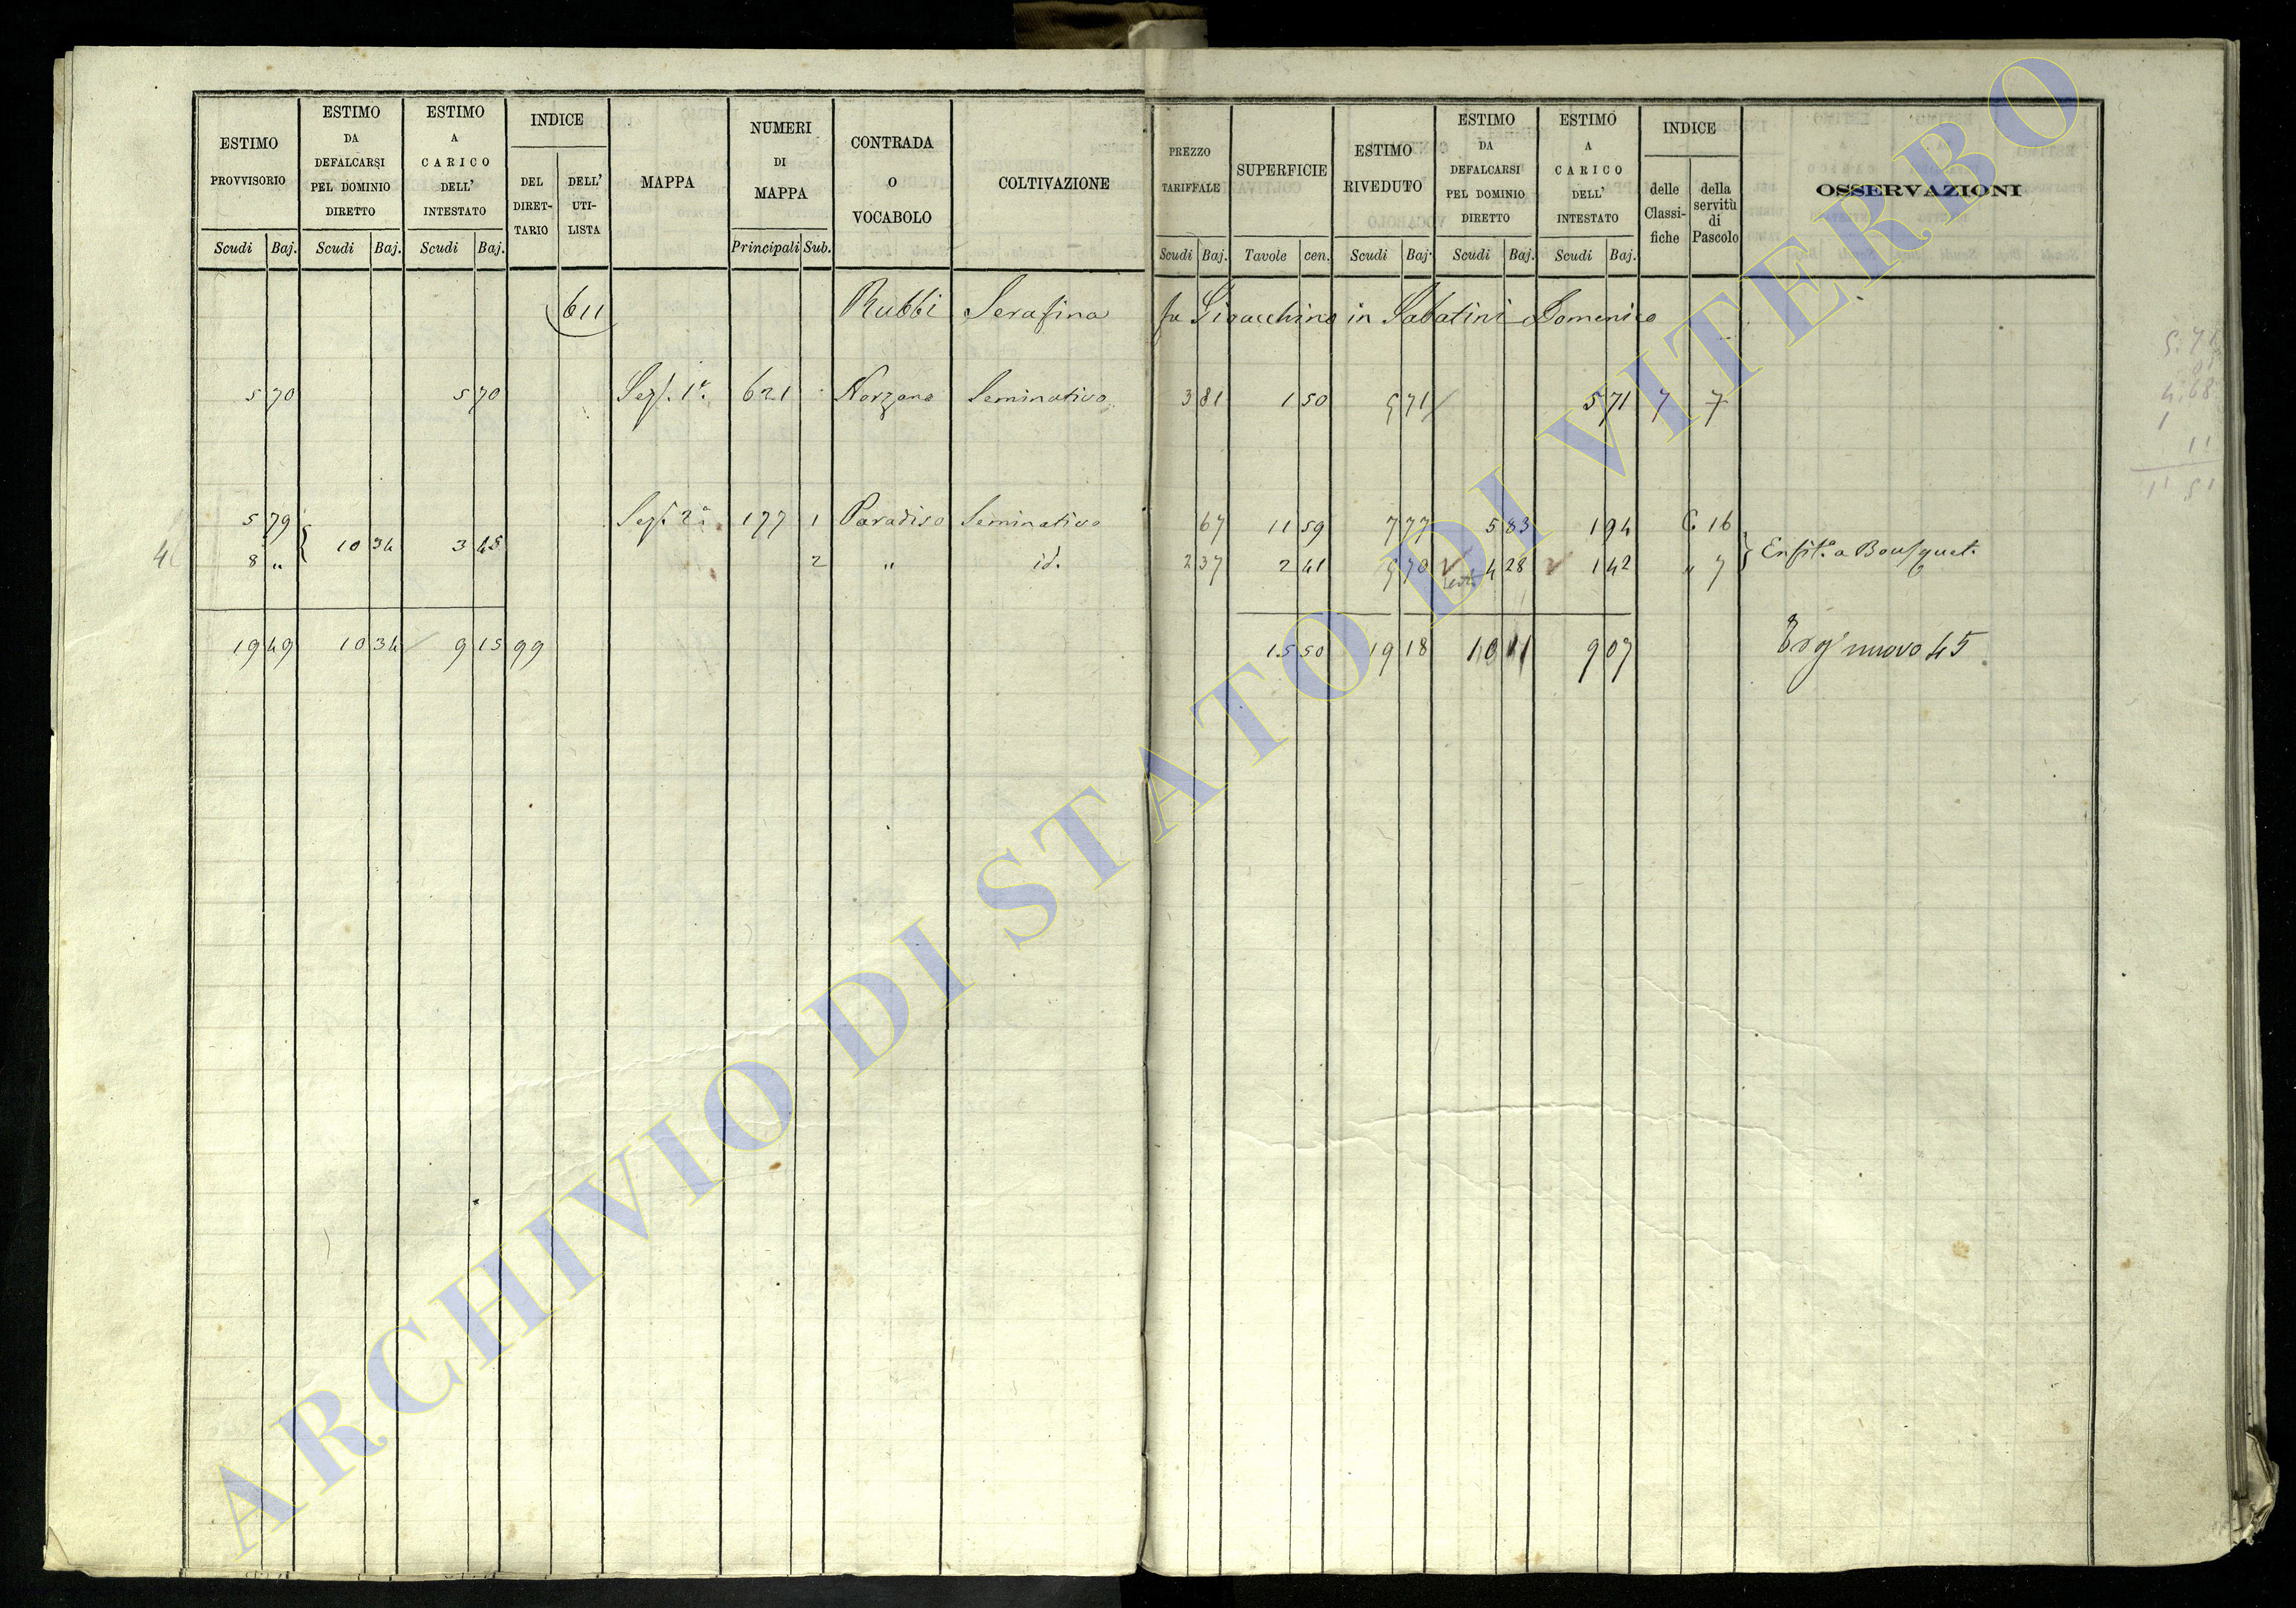 ESTIMO PROVVISORIO
Scudi Baj.
ESTIMO DA DEFALCARSI PEL DOMINIO DIRETTO
Scudi Baj.
ESTIMO A CARICO DELL' INTESTATO
Scudi Baj.
INDICE
DEL DIRET-TARIO
DELL' UTI-LISTA
MAPPA
NUMERI DI MAPPA
Principali Sub.
CONTRADA O VOCABOLO
COLTIVAZIONE
PREZZO TARIFFALE
Scudi Baj.
SUPERFICIE
Tavole cen.
ESTIMO RIVEDUTO
Scudi Baj.
ESTIMO DA DEFALCARSI PEL DOMINIO DIRETTO
Scudi Baj.
ESTIMO A CARICO DELL' INTESTATO
Scudi Baj.
INDICE
delle Classi-fiche
della servitù di Pascolo
OSSERVAZIONI
611 Rubbi Serafina fu Gioacchino in Sabatini Domenico
5 70 5 70 Sez. 1ª 621 Norzano Seminativo 3 81 1 50 5 71 5 71 7 7
5 79 Sez. 2ª 177 1 Paradiso Seminativo 67 11 59 7 77 5 83 1 94 C 16
10 34 3 45
8 " 2 " id. 2 37 2 41 5 70 4 28 1 42 " 7
Enfit.a a Bousquet
19 49 10 34 9 15 99 15 50 19 18 10 11 9 07
nuovo 45
5.71
4.68
1
11
11 51
ARCHIVIO DI STATO DI VITERBO